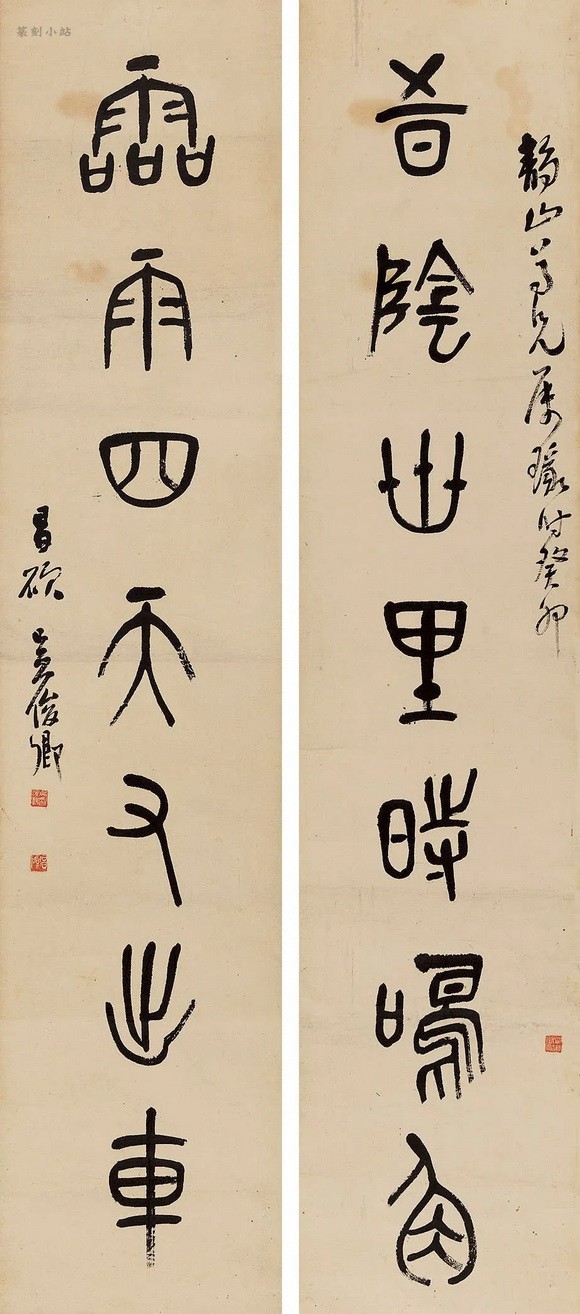 篆刻小站
陰世里時鳴角
靜山尊兄屬時癸卯
霝雨四天又出車
昌碩吳俊卿